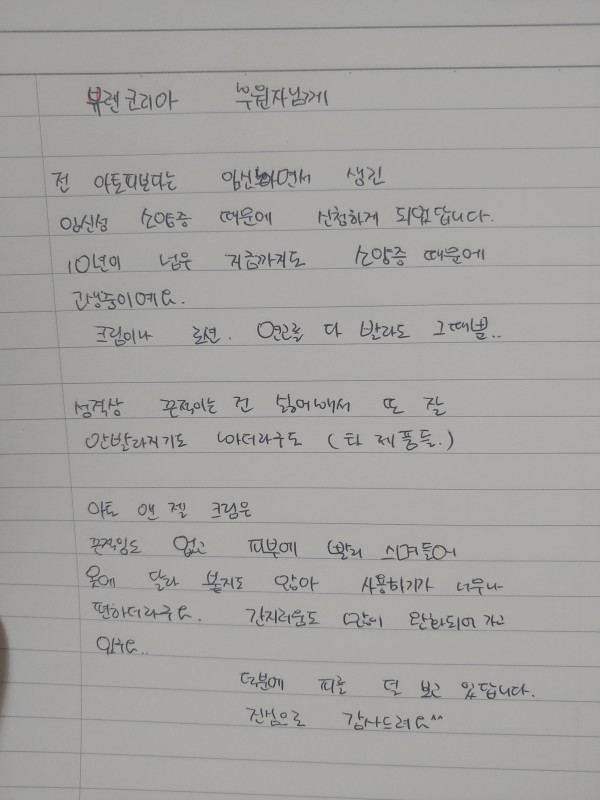 뷰렌코리아 부원자님께
전 아토피보다는 임신하면서 생긴
임신성 소양증 때문에 신청하게 되었답니다.
10년이 넘은 지금까지도 소양증 때문에
고생중이예요.
크림이나 로션. 연고를 다 발라도 그때뿐..
성격상 끈적이는 건 싫어해서 또 잘
안발라지기도 하더라구요 (타 제품들.)
아토 앤 젤 크림은
끈적임도 없고 피부에 빨리 스며들어
옷에 달라 붙지도 않아 사용하기가 너무나
편하더라구요. 간지러움도 많이 완화되어 가고
있구요..
덕분에 피를 덜 보고 있답니다.
진심으로 감사드려요^^